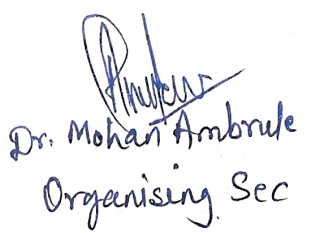 Dr. Mohan Ambrule
Organising Sec